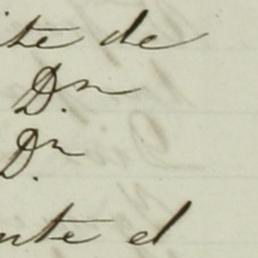 ite de
Dn
Dn
nte el